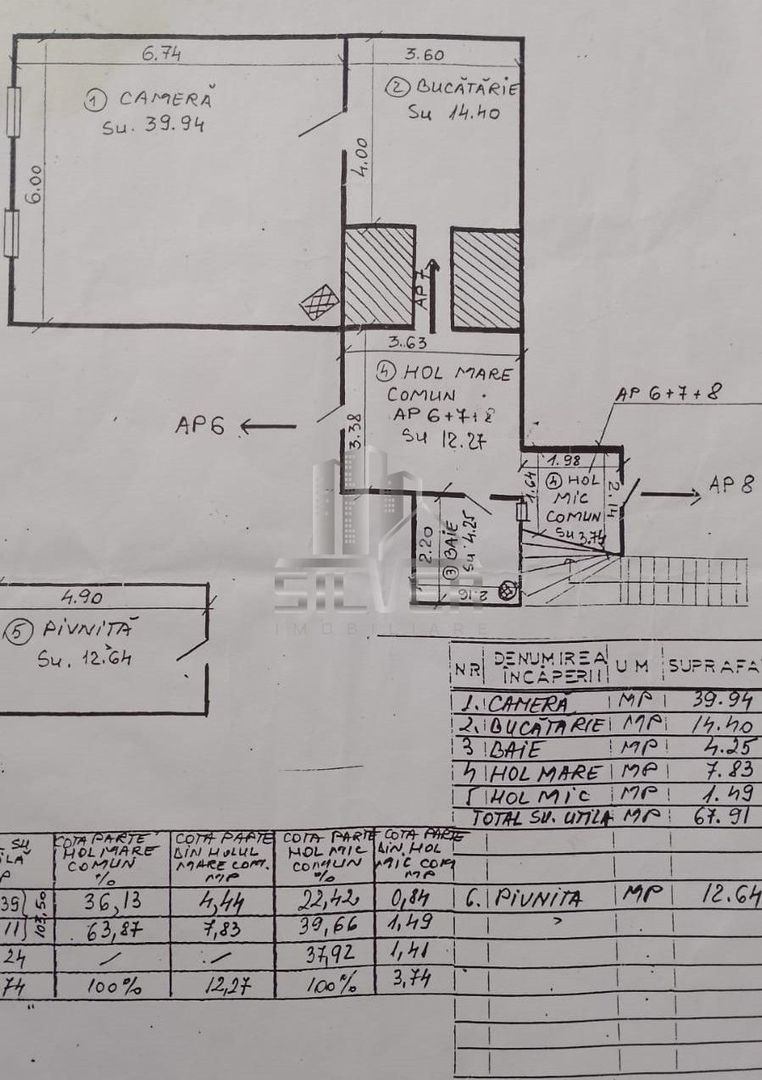 6.74
3.60
① CAMERĂ
Su. 39.94
② BUCĂTĂRIE
Su 14.40
6.00
4.00
AP 7
3.63
④ HOL MARE
COMUN
AP 6+7+8
Su 12.27
AP6
3.38
AP 6+7+8
1.98
1.64
④ HOL
MIC
COMUN
Su 3.74
2.14
AP 8
2.20
③ BAIE
Su 4.25
2.16
SILVER
IMOBILIARE
4.90
⑤ PIVNIȚĂ
Su. 12.64
NR DENUMIREA ÎNCĂPERII UM SUPRAFA
1. CAMERĂ MP 39.94
2. BUCĂTARIE MP 14.40
3 BAIE MP 4.25
4 HOL MARE MP 7.83
5 HOL MIC MP 1.49
TOTAL SU. UTILA MP 67.91
6. PIVNIȚA MP 12.64
SU
COTA PARTE HOL MARE COMUN %
COTA PARTE DIN HOLUL MARE COM. MP
COTA PARTE HOL MIC COMUN %
COTA PARTE DIN HOL MIC COM MP
39 103,50 36,13 4,44 22,42 0,84
11 63,87 7,83 39,66 1,49
24 / / 37,92 1,41
74 100% 12,27 100% 3,74